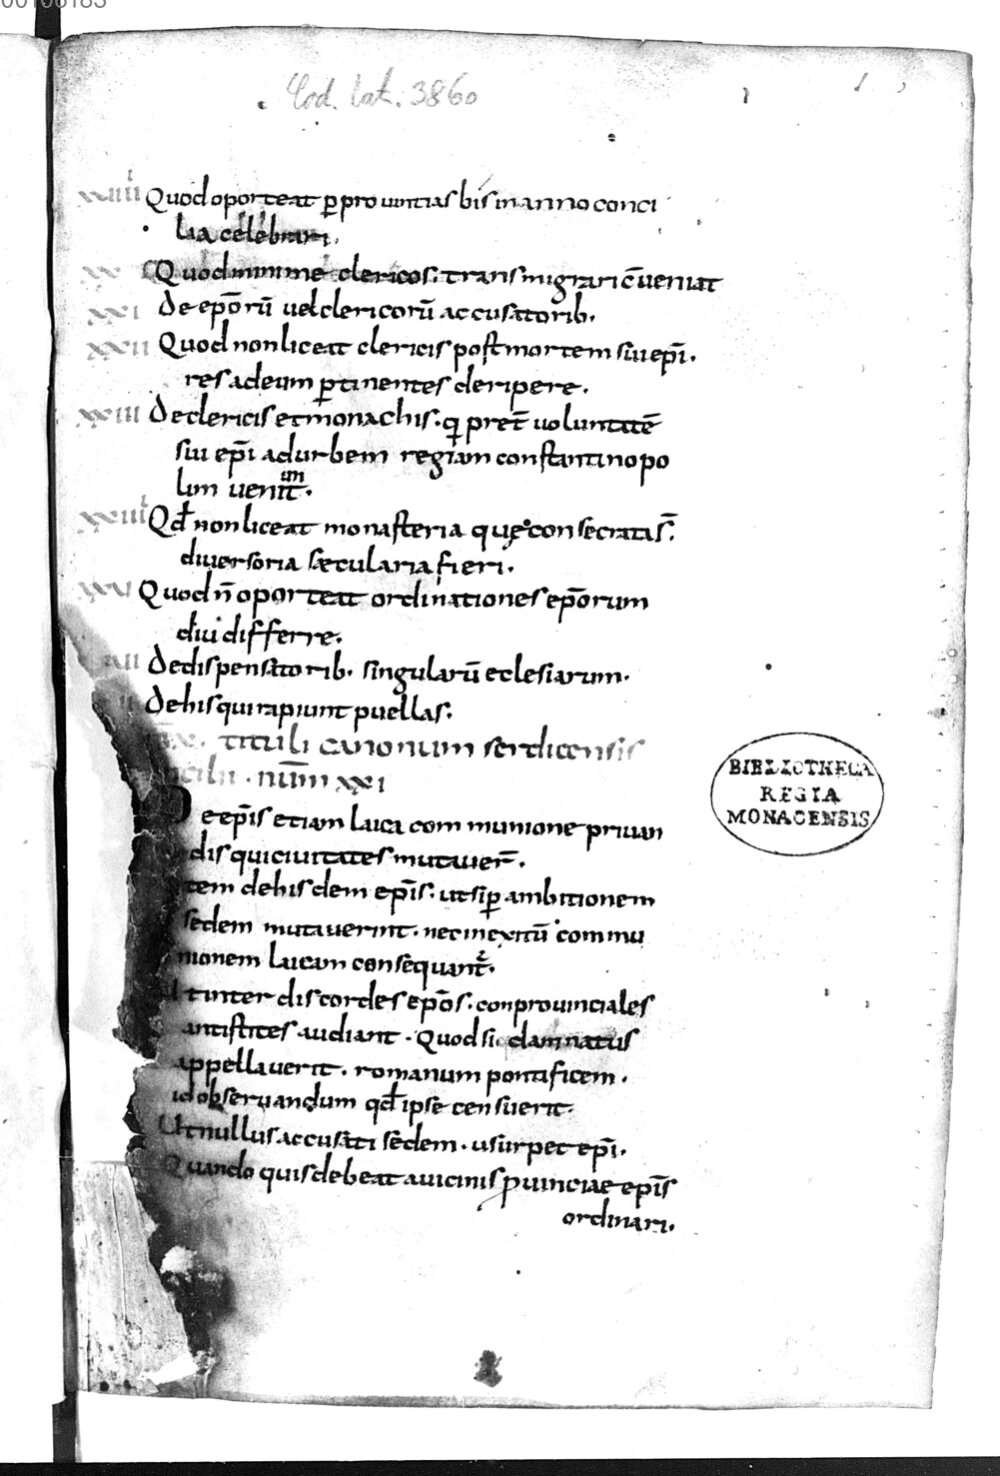 00100183
Cod. lat. 3860
xviiii Quod oporteat p̲ prouintias bis in anno conci
lia celebrari.
xx Quod minime clericos. transmigrari c̄ueniat
xxi De ep̄orū uel clericorū accusatorib.
xxii Quod non liceat clericis post mortem sui ep̄i.
res ad eum p̲tinentes deripere.
xxiii De clericis et monachis. q̲ p̲ret̄ uoluntatē
sui ep̄i ad urbem regiam constantinopo
lim uenit̄.
um
xxiiii Qđ non liceat monasteria quę consecrata s̄.
diuersoria sæcularia fieri.
xxv Quod n̄ oporteat ordinationes ep̄orum
diu differre.
De dispensatorib. singularū eclesiarum.
De his qui rapiunt puellas.
tituli canonum serdicensis
cilii. num̄ xxi
De ep̄is etiam laica communione priuan
dis qui ciuitates mutauer̄.
Item de hisdem ep̄is. ut si p̲ ambitionem
sedem mutauerint. nec in exitū commu
nionem laicam consequant̄.
Ut inter discordes ep̄os. conprouinciales
antistites audiant. Quod si damnatus
appellauerit. romanum pontificem.
id obseruandum qđ ipse censuerit.
Ut nullus accusati sedem. usurpet ep̄i.
Quando quis debeat a uicinis prouinciae ep̄is
ordinari.
BIBLIOTHECA
REGIA
MONACENSIS